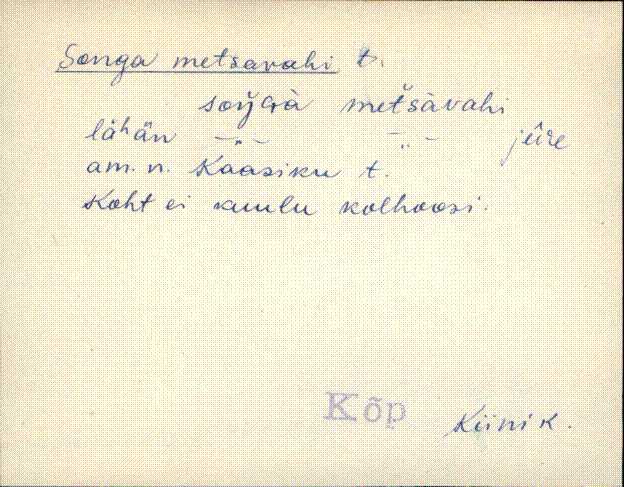 Songa metsavahi t.
soŋ̆Gà metšàvahi
lähän —„— —„— jûre
am. n. Kaasiku t.
Koht ei kuulu kolhoosi.
Kõp Kiinik.